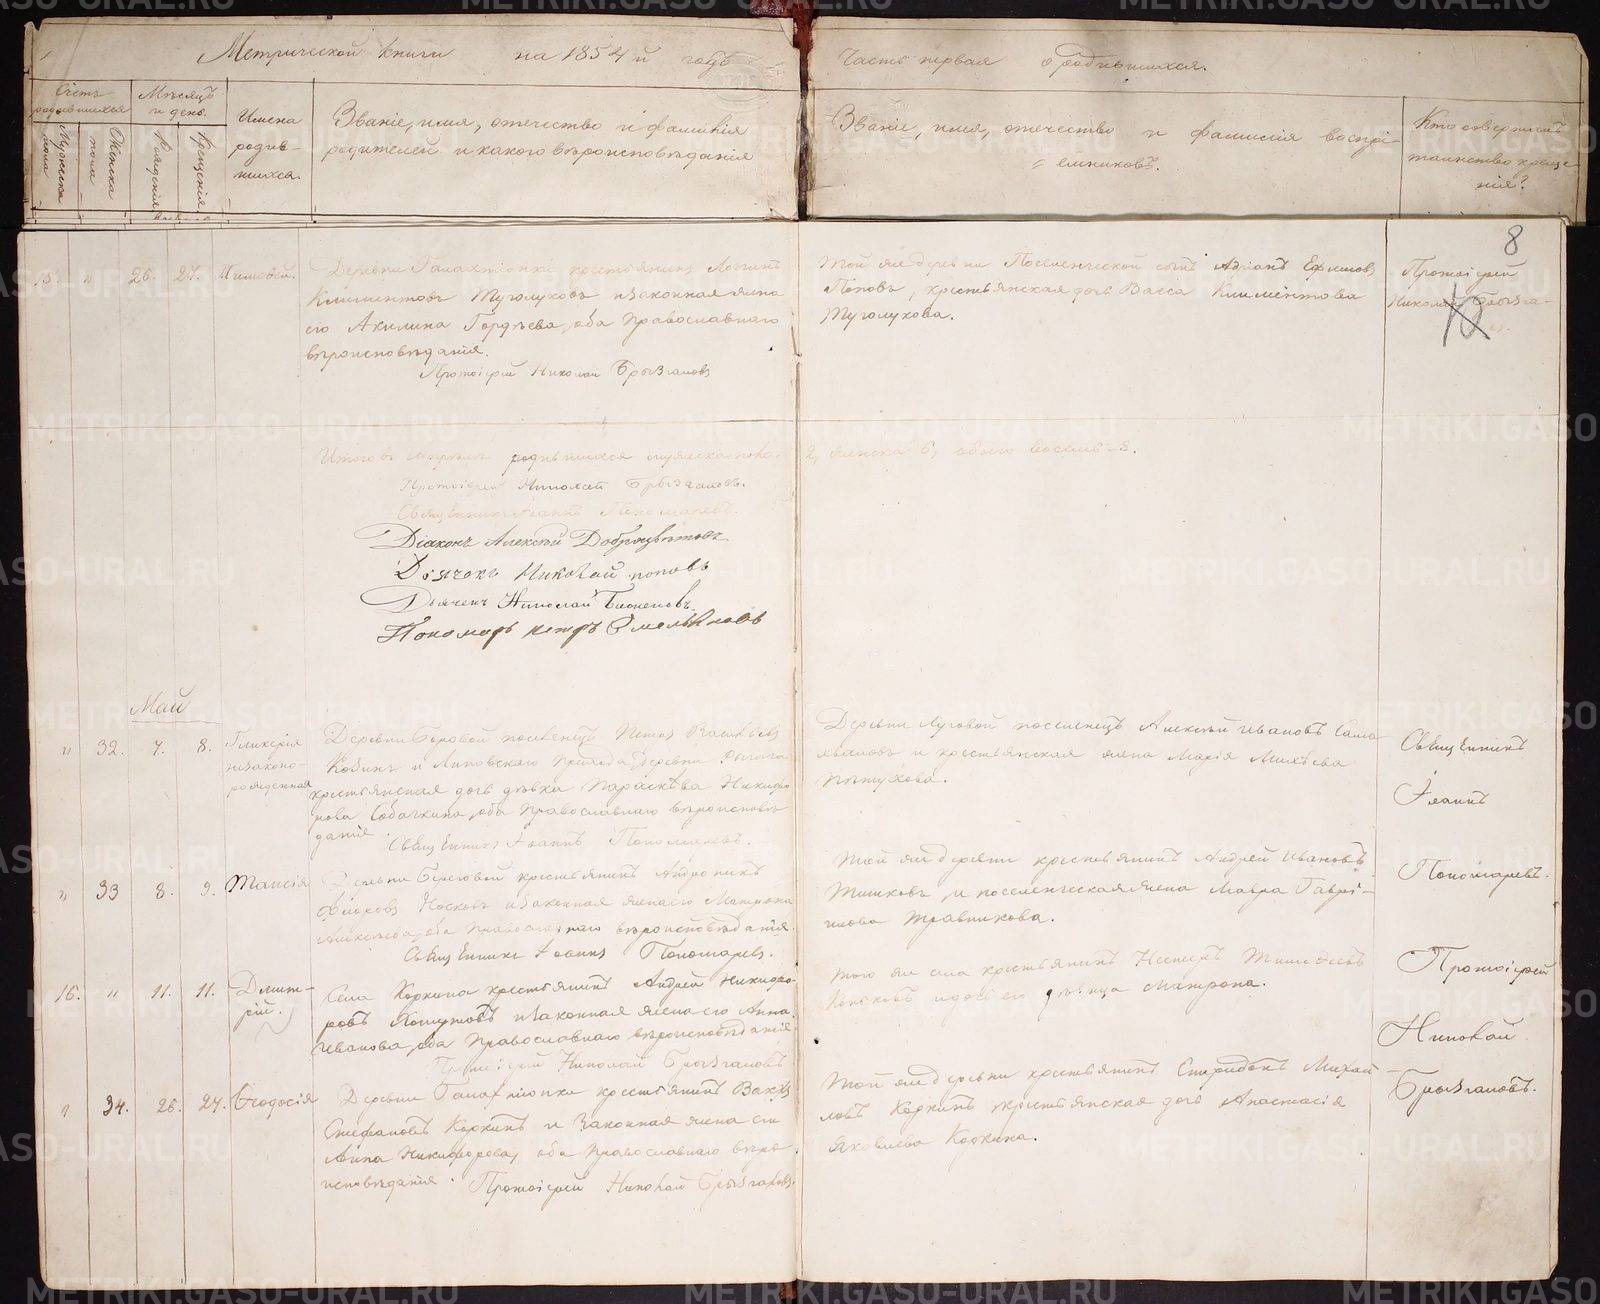 Метрической книги на 1854й годъ
Часть первая о родившихся.
Счетъ родившихся
Мужеска пола
Женска пола
Мѣсяцъ и день.
Рожденія
Крещенія
Имена родив-
шихся.
Званіе, имя, отечество и фамилія
родителей и какого вѣроисповѣданія
Званіе, имя, отечество и фамилія воспрі-
емниковъ.
Кто совершилъ
таинство креще-
нія?
8
15. " 26. 27. Тимофей.
Деревни Галактіонки крестьянинъ Логинъ
Климентовъ Туголуковъ и законная жена
его Акилина Гордѣева, оба Православнаго
вѣроисповѣданія.
Протоіерей Николай Брызгаловъ
Той же деревни Поселенческой сынъ Адріанъ Ефимовъ
Поповъ, крестьянская дочь Васса Климентова
Туголукова.
Протоіерей
Николай Брызга-
Итого въ Апрѣлѣ родившихся мужеска пола 2, женска 6, обоего восемь - 8.
Протоіерей Николай Брызгаловъ.
Священникъ Іоаннъ Пономаревъ.
Діаконъ Алексѣй Доброцвѣтовъ
Дьячокъ Николай Поповъ
Дьячекъ Николай Баженовъ.
Пономарь Петръ Омельяновъ
Май
" 32. 7. 8. Гликерія
незаконо-
рожденная
Деревни Боровой поселенецъ Петръ Васильевъ
и Липовскаго прихода деревни
крестьянская дочь дѣвка Параскѣва Никифо-
рова Собачкина, оба Православнаго вѣроисповѣ-
данія.
Священникъ Іоаннъ Пономаревъ.
Деревни Луговой поселенецъ Алексѣй Ивановъ Сама-
хваловъ и крестьянская жена Марія Михѣева
Пѣтухова.
Священникъ
Іоаннъ
Пономаревъ.
" 33 8. 9. Таисія
Деревни Береговой крестьянинъ Андроникъ
Фларовъ Носковъ и законная жена его Матрона
Алексѣева, оба Православнаго вѣроисповѣданія.
Священникъ Іоаннъ Пономаревъ.
Той же деревни крестьянинъ Андрей Ивановъ
Тишковъ, и поселенческая жена Мавра Гаврі-
илова Травникова.
16. " 11. 11. Димит-
рій.
Села Коркина крестьянинъ Андрей Никифо-
ровъ и законная жена его Анна
Иванова, оба Православнаго вѣроисповѣданія
Протоіерей Николай Брызгаловъ
Того же села крестьянинъ Несторъ Тимофеевъ
и дочь его дѣвица Матрона.
Протоіерей
Николай
Брызгаловъ.
" 34. 26. 27. Ѳеодосія
Деревни Галактіонки крестьянинъ Вакхъ
Стефановъ Коркинъ и законная жена его
Анна Никифорова, оба Православнаго вѣро-
исповѣданія. Протоіерей Николай Брызгаловъ.
Той же деревни крестьянинъ Спиридонъ Михай-
ловъ Коркинъ, крестьянская дочь Анастасія
Яковлева Коркина.
METRIKI.GASO-URAL.RU